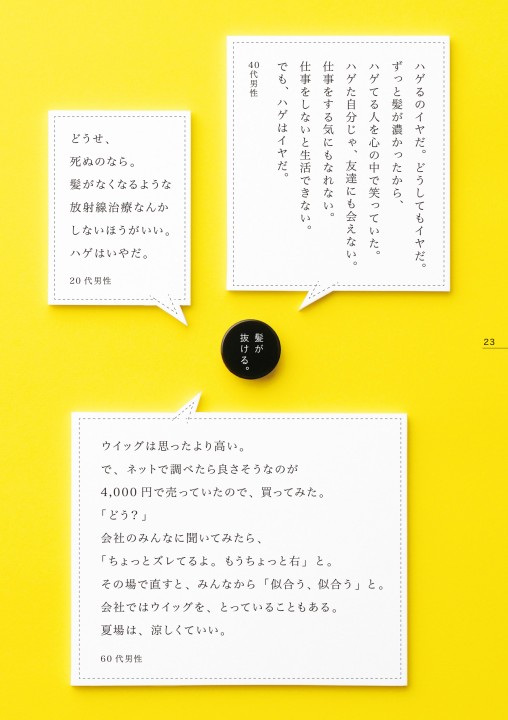 ハゲるのイヤだ。どうしてもイヤだ。
ずっと髪が濃かったから、
ハゲてる人を心の中で笑っていた。
ハゲた自分じゃ、友達にも会えない。
仕事をする気にもなれない。
仕事をしないと生活できない。
でも、ハゲはイヤだ。
40代男性
どうせ、
死ぬのなら。
髪がなくなるような
放射線治療なんか
しないほうがいい。
ハゲはいやだ。
20代男性
髪が
抜ける。
23
ウイッグは思ったより高い。
で、ネットで調べたら良さそうなのが
4,000円で売っていたので、買ってみた。
「どう？」
会社のみんなに聞いてみたら、
「ちょっとズレてるよ。もうちょっと右」と。
その場で直すと、みんなから「似合う、似合う」と。
会社ではウイッグを、とっていることもある。
夏場は、涼しくていい。
60代男性